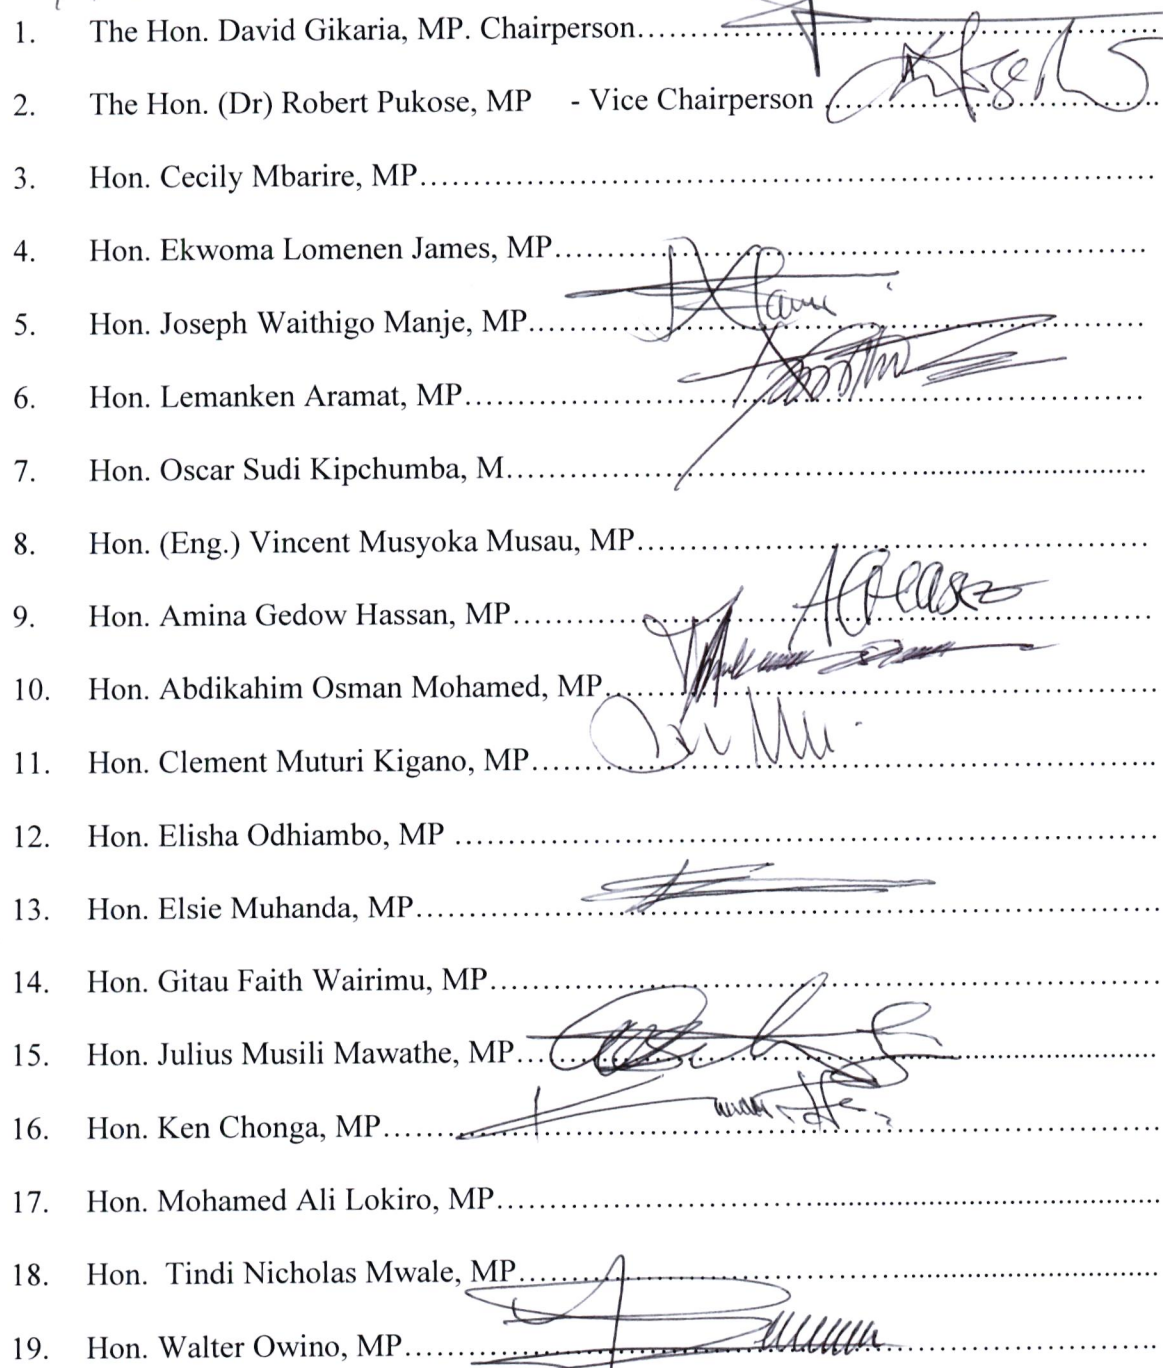 1. The Hon. David Gikaria, MP. Chairperson..............................
2. The Hon. (Dr) Robert Pukose, MP - Vice Chairperson ..............................
3. Hon. Cecily Mbarire, MP..............................
4. Hon. Ekwoma Lomenen James, MP..............................
5. Hon. Joseph Waithigo Manje, MP..............................
6. Hon. Lemanken Aramat, MP..............................
7. Hon. Oscar Sudi Kipchumba, M..............................
8. Hon. (Eng.) Vincent Musyoka Musau, MP..............................
9. Hon. Amina Gedow Hassan, MP..............................
10. Hon. Abdikahim Osman Mohamed, MP..............................
11. Hon. Clement Muturi Kigano, MP..............................
12. Hon. Elisha Odhiambo, MP ..............................
13. Hon. Elsie Muhanda, MP..............................
14. Hon. Gitau Faith Wairimu, MP..............................
15. Hon. Julius Musili Mawathe, MP..............................
16. Hon. Ken Chonga, MP..............................
17. Hon. Mohamed Ali Lokiro, MP..............................
18. Hon. Tindi Nicholas Mwale, MP..............................
19. Hon. Walter Owino, MP..............................